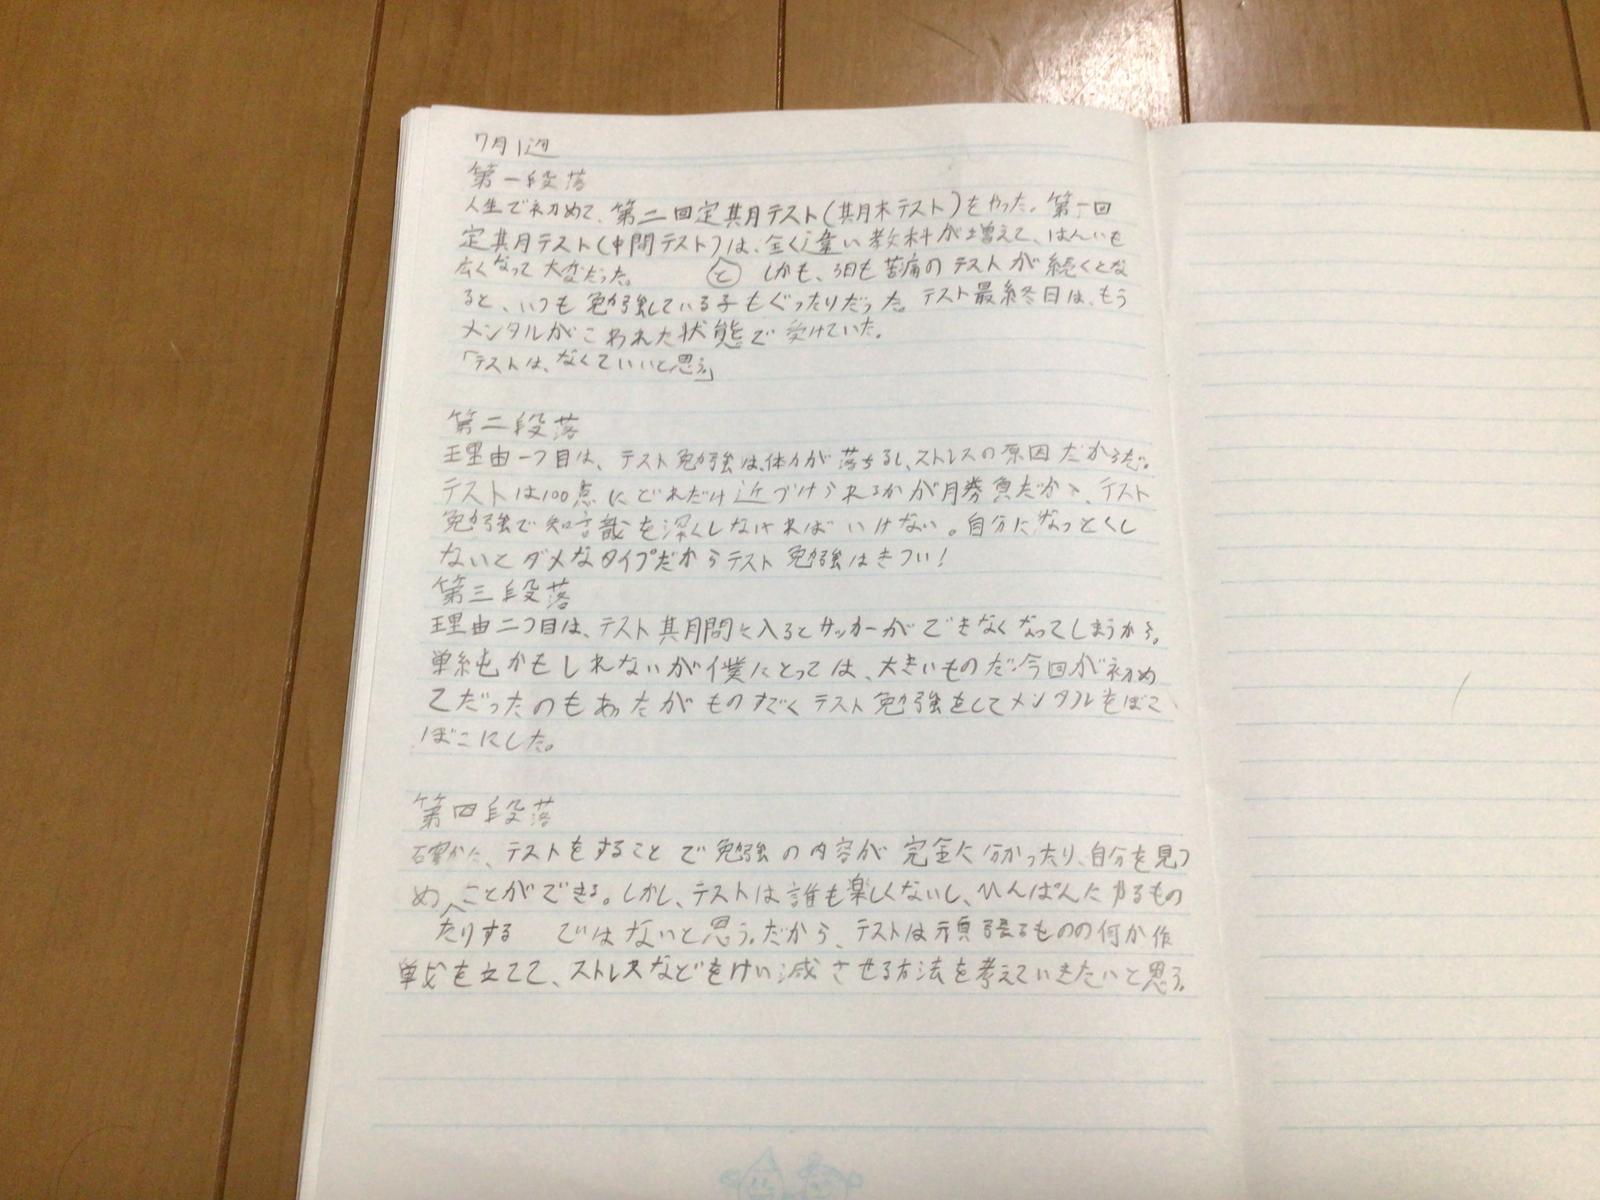 7月1週
第一段落
人生で初めて、第二回定期テスト(期末テスト)をやった。第一回
定期テスト(中間テスト)は、全く違い教科が増えて、はんいも
広くなって大変だった。 と しかも、3日も苦痛のテストが続くとな
ると、いつも勉強している子もぐったりだった。テスト最終日は、もう
メンタルがこわれた状態で受けていた。
「テストは、なくていいと思う」
第二段落
理由一つ目は、テスト勉強は、体力が落ちるし、ストレスの原因だからだ。
テストは100点にどれだけ近づけられるかが勝負だから、テスト
勉強で知識を深くしなければいけない。自分になっとくし
ないとダメなタイプだからテスト勉強はきつい!
第三段落
理由二つ目は、テスト期間に入るとサッカーができなくなってしまうから。
単純かもしれないが僕にとっては、大きいものだ今回が初め
てだったのもあったがものすごくテスト勉強をしてメンタルをぼこ
ぼこにした。
第四段落
確かに、テストをすることで勉強の内容が完全に分かったり、自分を見つ
めことができる。しかし、テストは誰も楽しくないし、ひんぱんにやるもの
たりする ではないと思う。だから、テストは頑張るものの何か作
戦を立てて、ストレスなどをけい減させる方法を考えていきたいと思う。